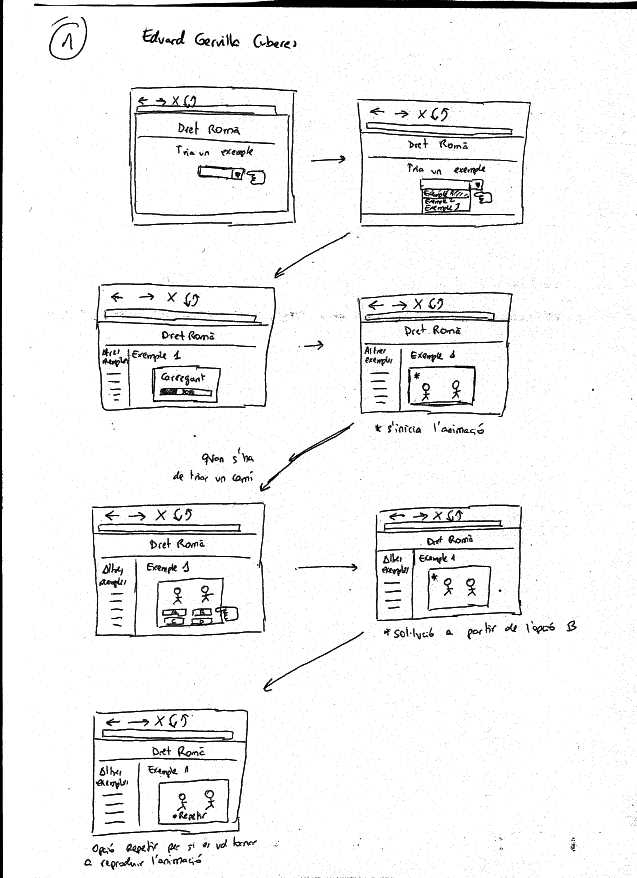 1
Eduard Gervilla Cuberes
Dret Romà
Tria un exemple
Dret Romà
Tria un exemple
Exemple 1
Exemple 2
Exemple 3
Dret Romà
Altres exemples
Exemple 1
Carregant
Dret Romà
Altres exemples
Exemple 1
*
* s'inicia l'animació
quan s'ha
de triar un camí
Dret Romà
Altres exemples
Exemple 1
A B
C D
Dret Romà
Altres exemples
Exemple 1
*
* sol·lució a partir de l'opció B
Dret Romà
Altres exemples
Exemple 1
Repetir
Opció Repetir per si es vol tornar
a reproduir l'animació